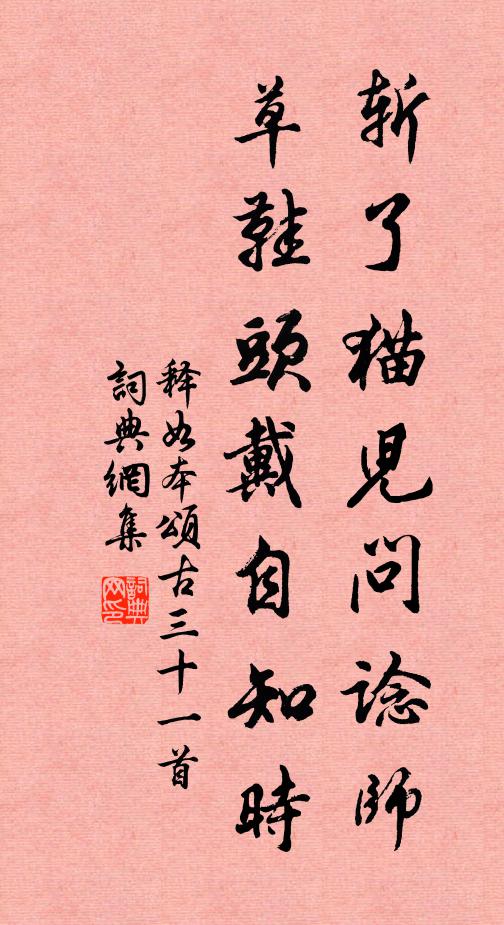 斩了猫児问谂師
草鞋頭戴自知時
释如本頌古三十一首
詞典網集
詞典網印